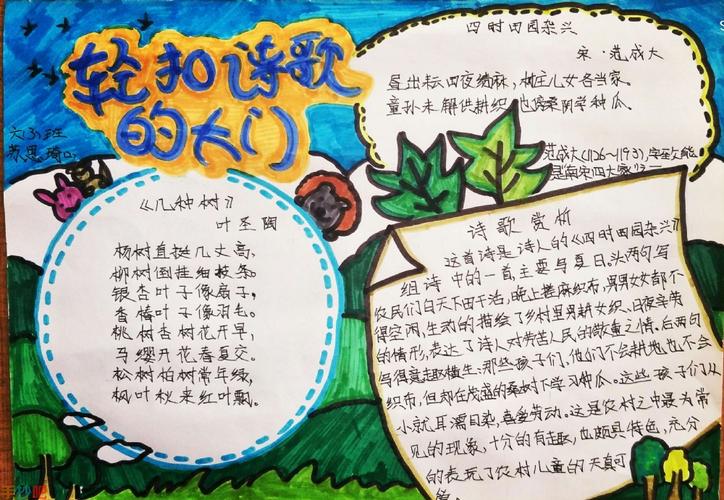 轻扣诗歌
的大门
六(3)班
苏思琦
《几种树》
叶圣陶
杨树直挺几丈高,
柳树倒挂细枝条。
银杏叶子像扇子,
香椿叶子像羽毛。
桃树杏树花开早,
马缨开花春夏交。
松树柏树常年绿,
枫叶秋来红叶飘。
四时田园杂兴
宋·范成大
昼出耘田夜绩麻,村庄儿女各当家。
童孙未解供耕织 也傍桑阴学种瓜。
范成大(1126~1193),字致能
是南宋四大家之一
诗歌赏析
这首诗是诗人的《四时田园杂兴》
组诗中的一首主要与夏日。头两句写
农民们白天下田干活,晚上搓麻织布,男男女女都不
得空闲,生动的描绘了乡村里男耕女织、日夜辛劳
的情形,表达了诗人对劳苦人民的敬重之情。后两句
写得意趣横生:那些孩子们,他们不会耕地也不会
织布,但却在茂盛的桑树下学习种瓜。这些孩子们从
小就耳濡目染,喜爱劳动。这是农村之中最为常
见的现象,十分的有趣,也颇具特色,充分
的表现了农村儿童的天真可